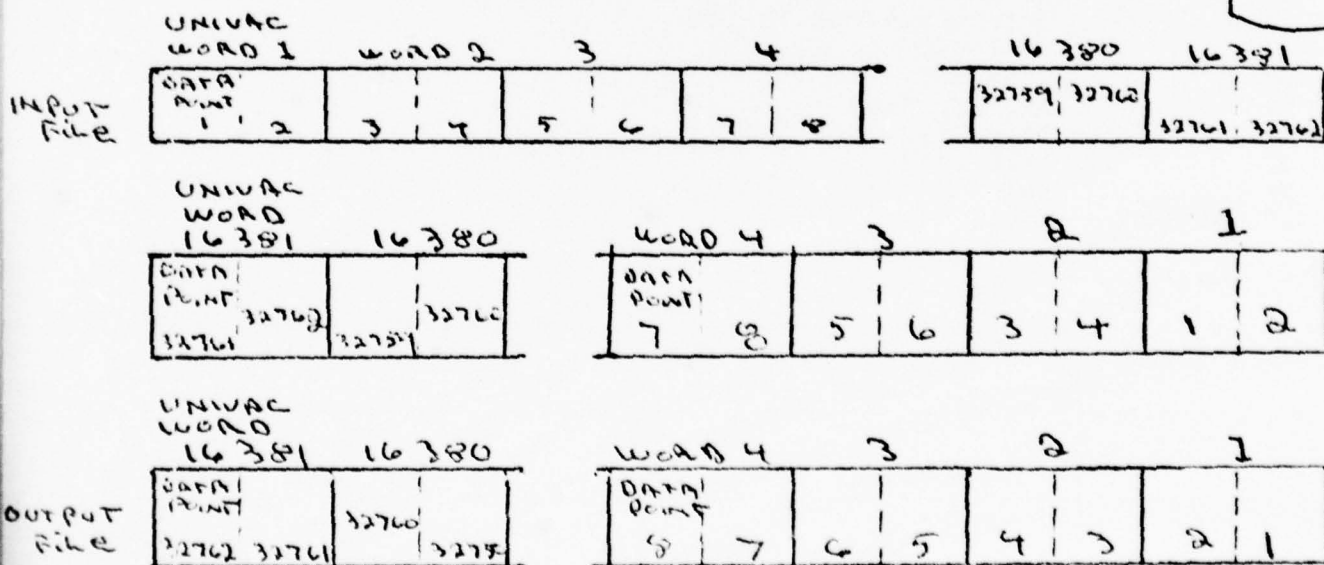 UNIVAC
WORD 1 WORD 2 3 4 16 380 16 381
INPUT
File
DATA
Point
1 2 3 4 5 6 7 8 32759 32760 32761 32762
UNIVAC
WORD
16 381 16 380 WORD 4 3 2 1
DATA
Point
32761 32762 32759 32760
DATA
Point
7 8 5 6 3 4 1 2
UNIVAC
WORD
16 381 16 380 WORD 4 3 2 1
OUTPUT
File
DATA
Point
32762 32761 32760
DATA
Point
8 7 6 5 4 3 2 1